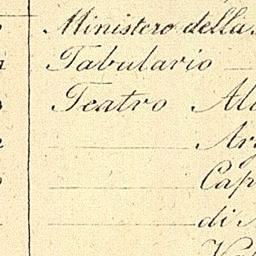 Ministero della
Tabulario
Teatro Al
Ar
Cap
di